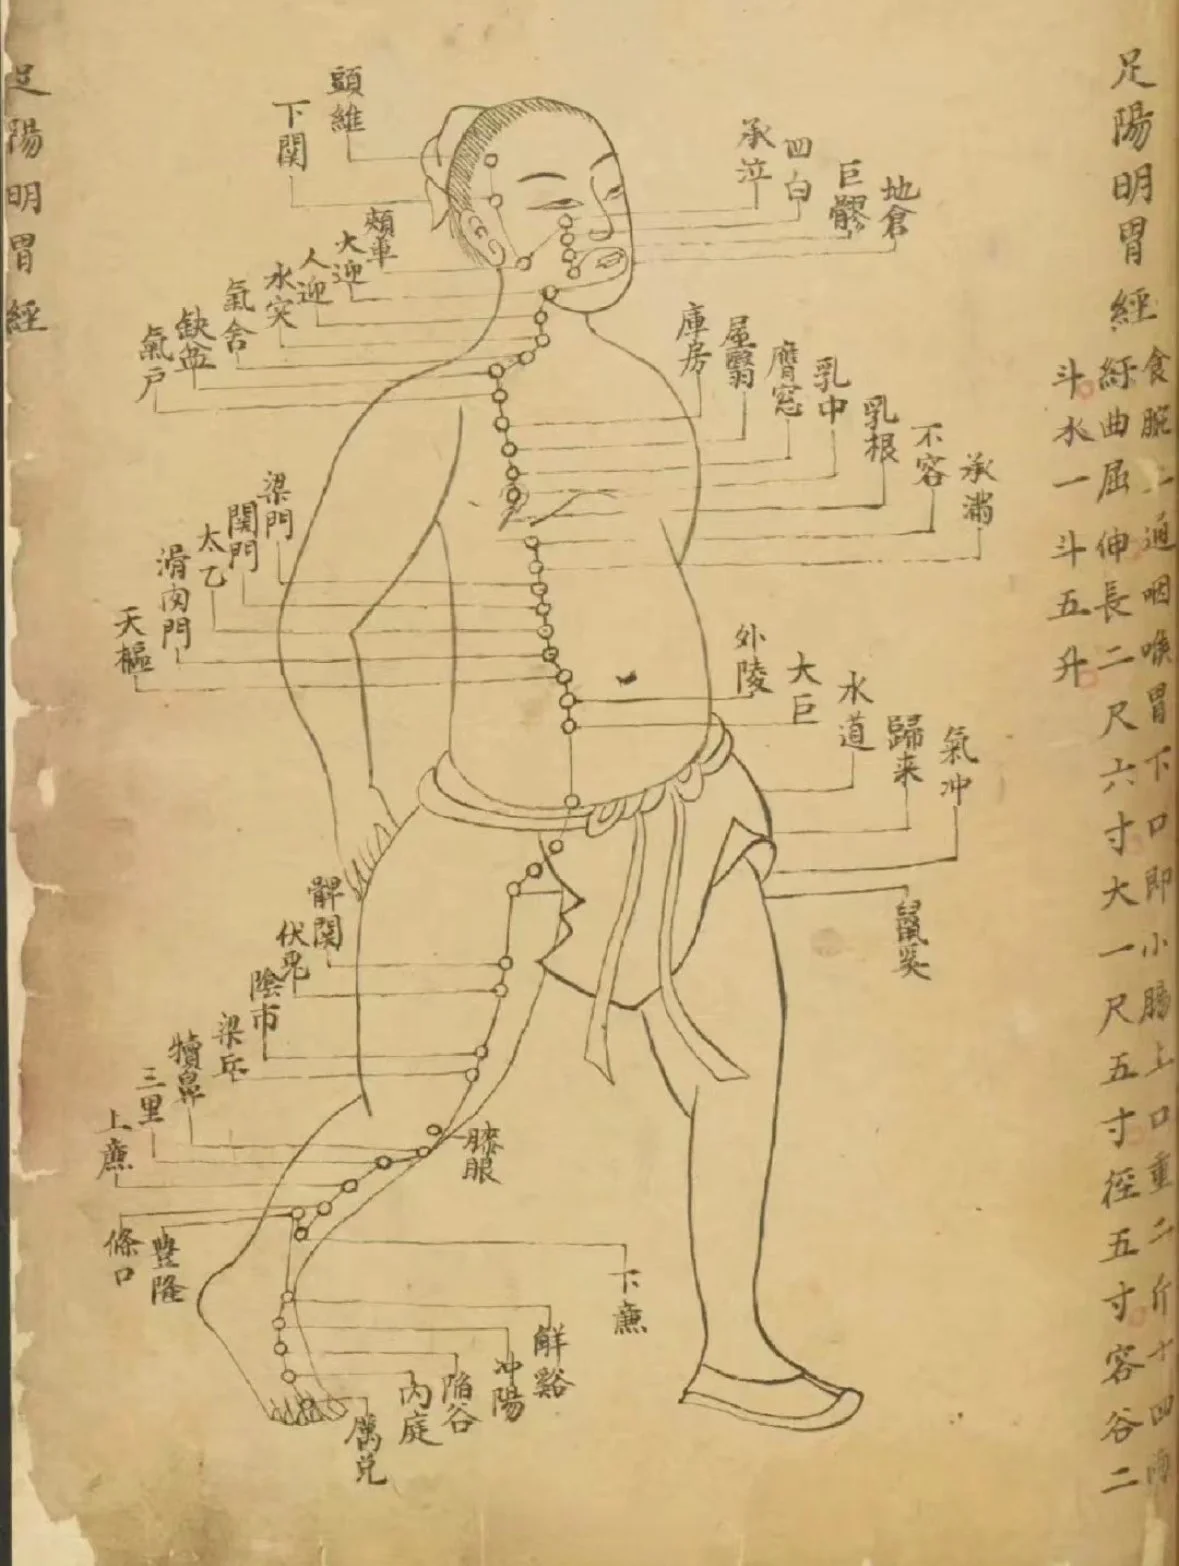 足陽明胃經
食脘上通咽喉胃下口即小腸上口重二斤十四両
紆曲屈伸長二尺六寸大一尺五寸徑五寸容谷二
斗水一斗五升
承泣
四白
巨髎
地倉
頭維
下関
頬車
大迎
人迎
水突
氣舍
缺盆
氣户
庫房
屋翳
膺窓
乳中
乳根
不容
承滿
梁門
関門
太乙
滑肉門
天樞
外陵
大巨
水道
歸来
氣冲
鼠奚
髀関
伏兎
陰市
梁丘
犢鼻
膝眼
三里
上廉
條口
豊隆
下廉
觧谿
冲陽
陷谷
内庭
厲兌
足陽明胃經